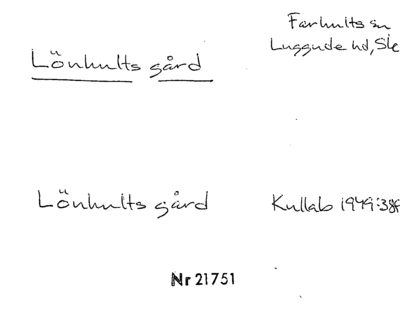 Farhults sn
Luggude hd, Sk
Lönhults gård
Lönhults gård
Kullab 1949:38f
Nr 21751